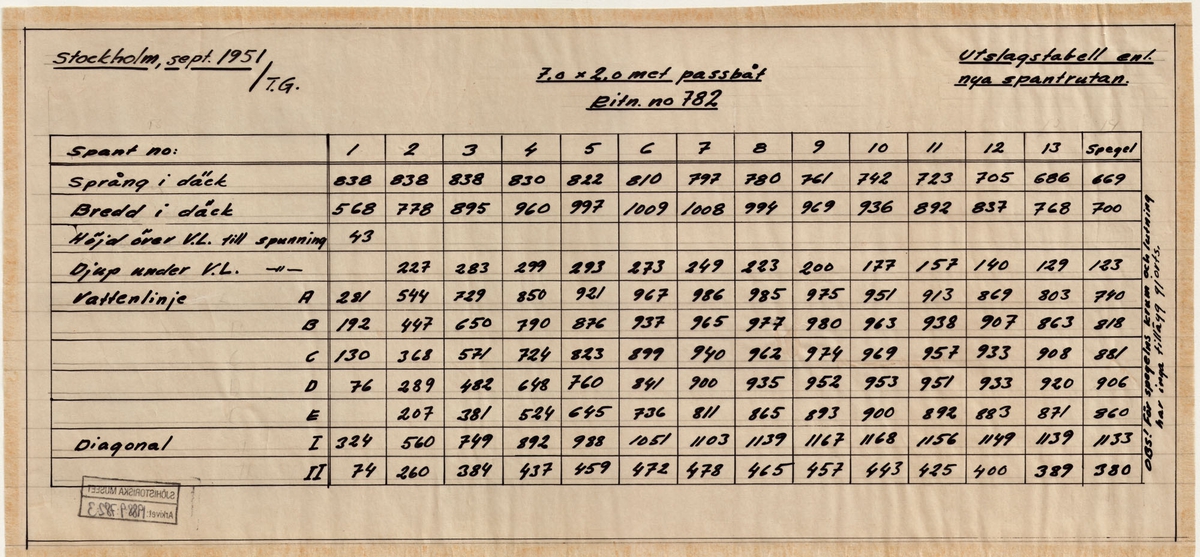 Stockholm, sept. 1951
/T.G.
7,0 x 2,0 met passbåt
Ritn. no 782
Utslagstabell enl.
nya spantrutan.
Spant no: 1 2 3 4 5 6 7 8 9 10 11 12 13 Spegel
Språng i däck 838 838 838 830 822 810 797 780 761 742 723 705 686 669
Bredd i däck 568 778 895 960 997 1009 1008 994 969 936 892 837 768 700
Höjd över V.L. till spunning 43
Djup under V.L. —"— 227 283 299 293 273 249 223 200 177 157 140 129 123
Vattenlinje A 281 544 729 850 921 967 986 985 975 951 913 869 803 740
B 192 447 650 790 876 937 965 977 980 963 938 907 863 818
C 130 368 571 724 823 899 940 962 974 969 957 933 908 881
D 76 289 482 648 760 841 900 935 952 953 951 933 920 906
E 207 381 524 645 736 811 865 893 900 892 883 871 860
Diagonal I 324 560 749 892 988 1051 1103 1139 1167 1168 1156 1149 1139 1133
II 74 260 384 437 459 472 478 465 457 443 425 400 389 380
OBS! För spegelns krum och lutning
har inga tillägg gjorts.
SJÖHISTORISKA MUSEET
Arkivet: